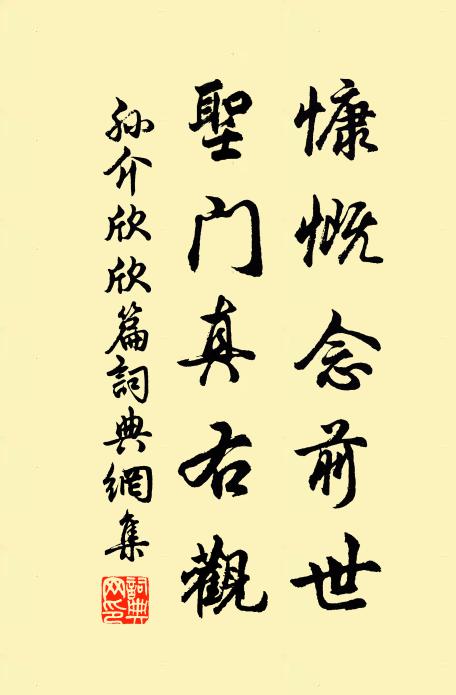 慷慨念前世
聖门真右觀
孙介欣欣篇詞典網集
詞典网印